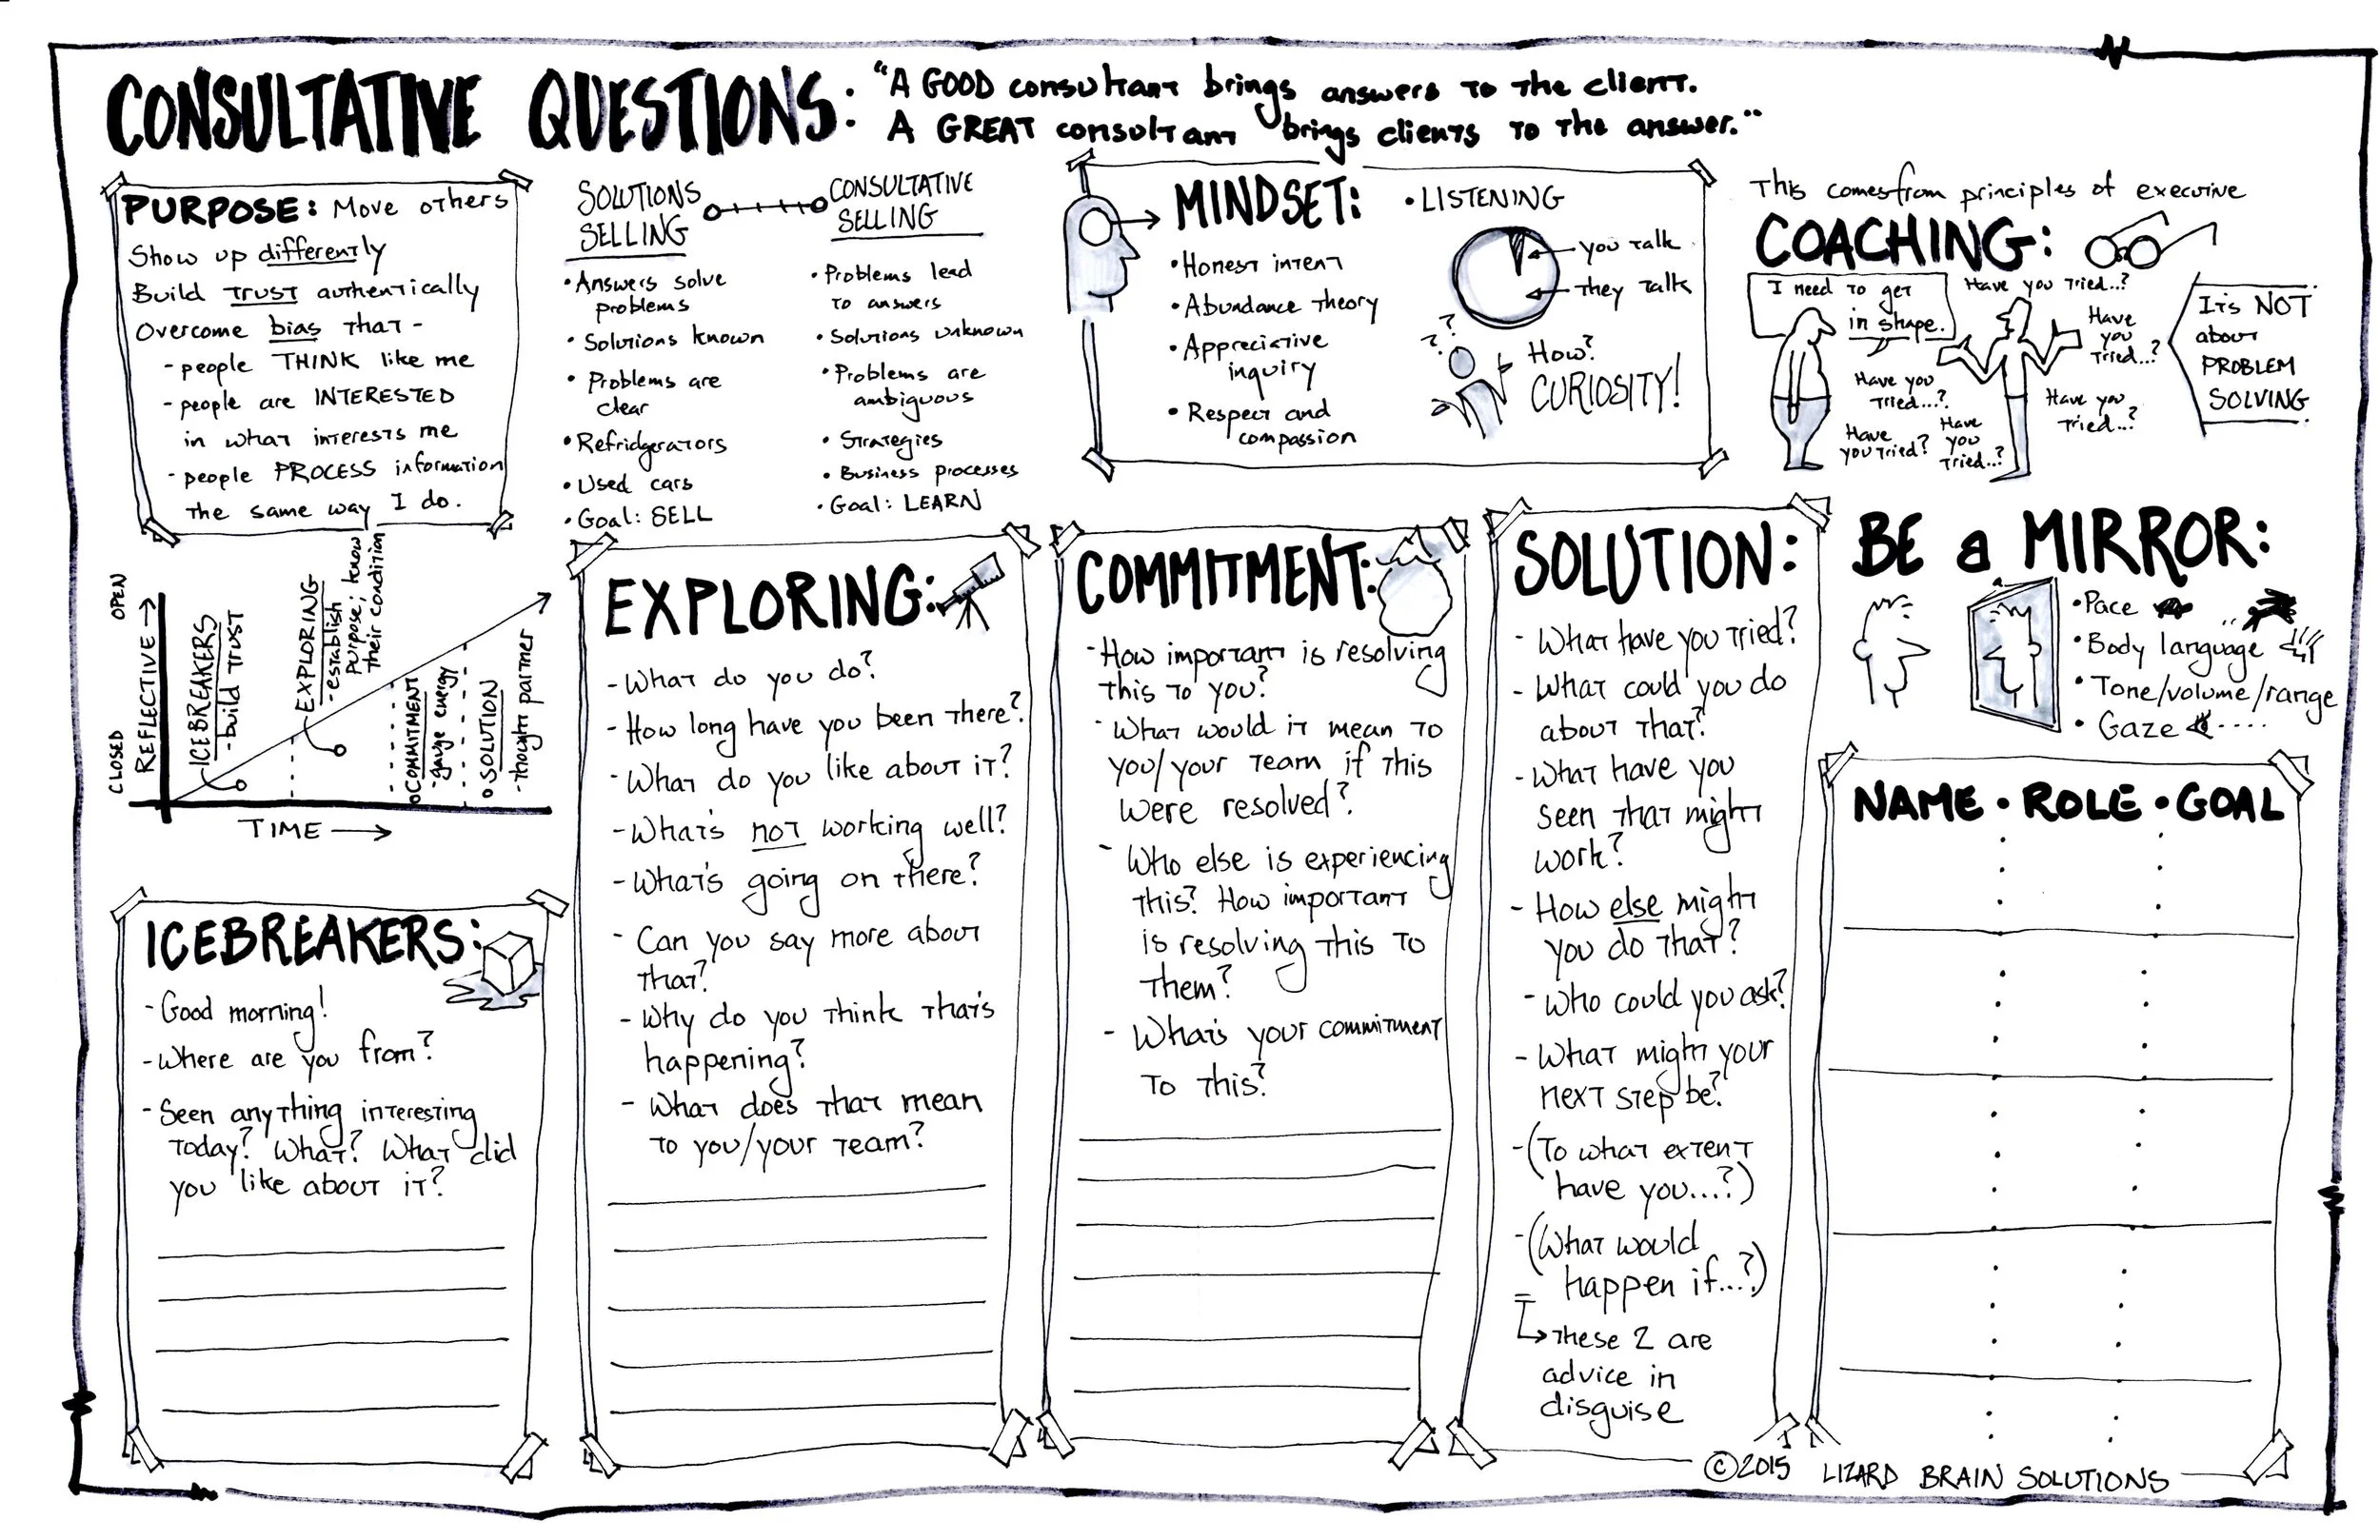 CONSULTATIVE QUESTIONS:
"A GOOD consultant brings answers to the client.
A GREAT consultant brings clients to the answer."
PURPOSE: Move others
Show up differently
Build TRUST authentically
Overcome bias that -
- people THINK like me
- people are INTERESTED
in what interests me
- people PROCESS information
the same way I do.
SOLUTIONS
SELLING
• Answers solve
problems
• Solutions known
• Problems are
clear
• Refridgerators
• Used cars
• Goal: SELL
CONSULTATIVE
SELLING
• Problems lead
to answers
• Solutions unknown
• Problems are
ambiguous
• Strategies
• Business processes
• Goal: LEARN
MINDSET:
• Honest intent
• Abundance theory
• Appreciative
inquiry
• Respect and
compassion
• LISTENING
you talk
they talk
? ? ?
How?
CURIOSITY!
This comes from principles of executive
COACHING:
I need to get
in shape.
Have you tried..?
Have
you
tried...?
Have you
tried...?
Have you
tried..?
Have
you tried?
Have
you
tried...?
It's NOT
about
PROBLEM
SOLVING
OPEN
CLOSED
REFLECTIVE →
ICEBREAKERS
- build trust
EXPLORING
- establish
purpose; know
their condition
COMMITMENT
- gauge energy
SOLUTION
- thought partner
TIME →
ICEBREAKERS:
- Good morning!
- Where are you from?
- Seen anything interesting
today? What? What did
you like about it?
EXPLORING:
- What do you do?
- How long have you been there?
- What do you like about it?
- What's not working well?
- What's going on there?
- Can you say more about
that?
- Why do you think that's
happening?
- What does that mean
to you/your team?
COMMITMENT:
- How important is resolving
this to you?
- What would it mean to
you/your team if this
were resolved?
- Who else is experiencing
this? How important
is resolving this to
them?
- What's your commitment
to this?
SOLUTION:
- What have you tried?
- What could you do
about that?
- What have you
seen that might
work?
- How else might
you do that?
- Who could you ask?
- What might your
next step be?
- (To what extent
have you...?)
- (What would
happen if...?)
→ these 2 are
advice in
disguise
BE a MIRROR:
• Pace
• Body language
• Tone/volume/range
• Gaze
NAME • ROLE • GOAL
© 2015 LIZARD BRAIN SOLUTIONS